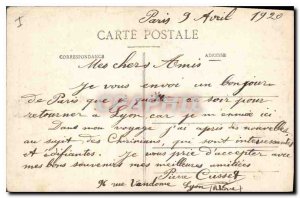 I
Paris 9 Avril 1920
CARTE POSTALE
CORRESPONDANCE
ADRESSE
Mes chers Amis
Je vous envoi un bonjour
de Paris que je quitte ce soir pour
retourner à Lyon car je m'ennuie ici
Dans mon voyage j'ai après des nouvelles
au sujet des qui sont intéressantes
et édifiantes. Je vous prie d'accepter avec
mes bons souvenirs mes meilleures amitiés
Pierre Cusset
96 rue Vendome Lyon (Rhône)